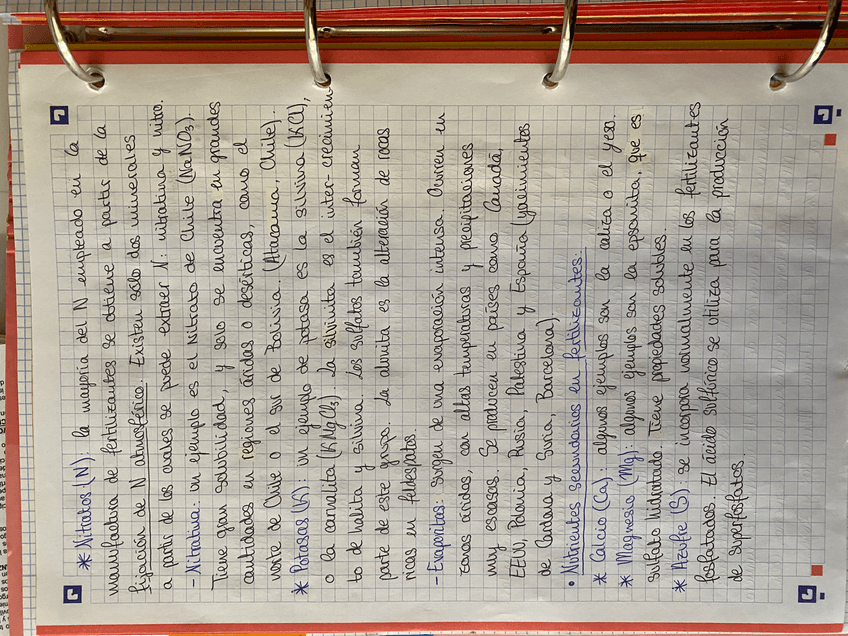 * Nitratos (N): la mayoría del N empleado en la
manufactura de fertilizantes se obtiene a partir de la
fijación de N atmosférico. Existen sólo dos minerales
a partir de los cuales se puede extraer N: nitratina y nitro.
- Nitratina: un ejemplo es el Nitrato de Chile (NaNO3).
Tiene gran solubilidad, y solo se encuentra en grandes
cantidades en regiones áridas o desérticas, como el
norte de Chile o el sur de Bolivia. (Atacama, Chile).
* Potasas (K): un ejemplo de potasa es la silvina (KCl),
o la carnalita (KMgCl3). La silvinita es el inter-crecimien
to de halita y silvina. Los sulfatos también forman
parte de este grupo. La alunita es la alteración de rocas
ricas en feldespatos.
- Evaporitas: surgen de una evaporación intensa. Ocurren en
zonas áridas, con altas temperaturas y precipitaciones
muy escasas. Se producen en países como Canadá,
EEUU, Polonia, Rusia, Palestina y España (yacimientos
de Cardona y Suria, Barcelona)
• Nutrientes secundarios en fertilizantes.
* Calcio (Ca): algunos ejemplos son la caliza o el yeso.
* Magnesio (Mg): algunos ejemplos son la epsomita, que es
sulfato hidratado. Tiene propiedades solubles.
* Azufre (S): se incorpora normalmente en los fertilizantes
fosfatados. El ácido sulfúrico se utiliza para la producción
de superfosfatos.